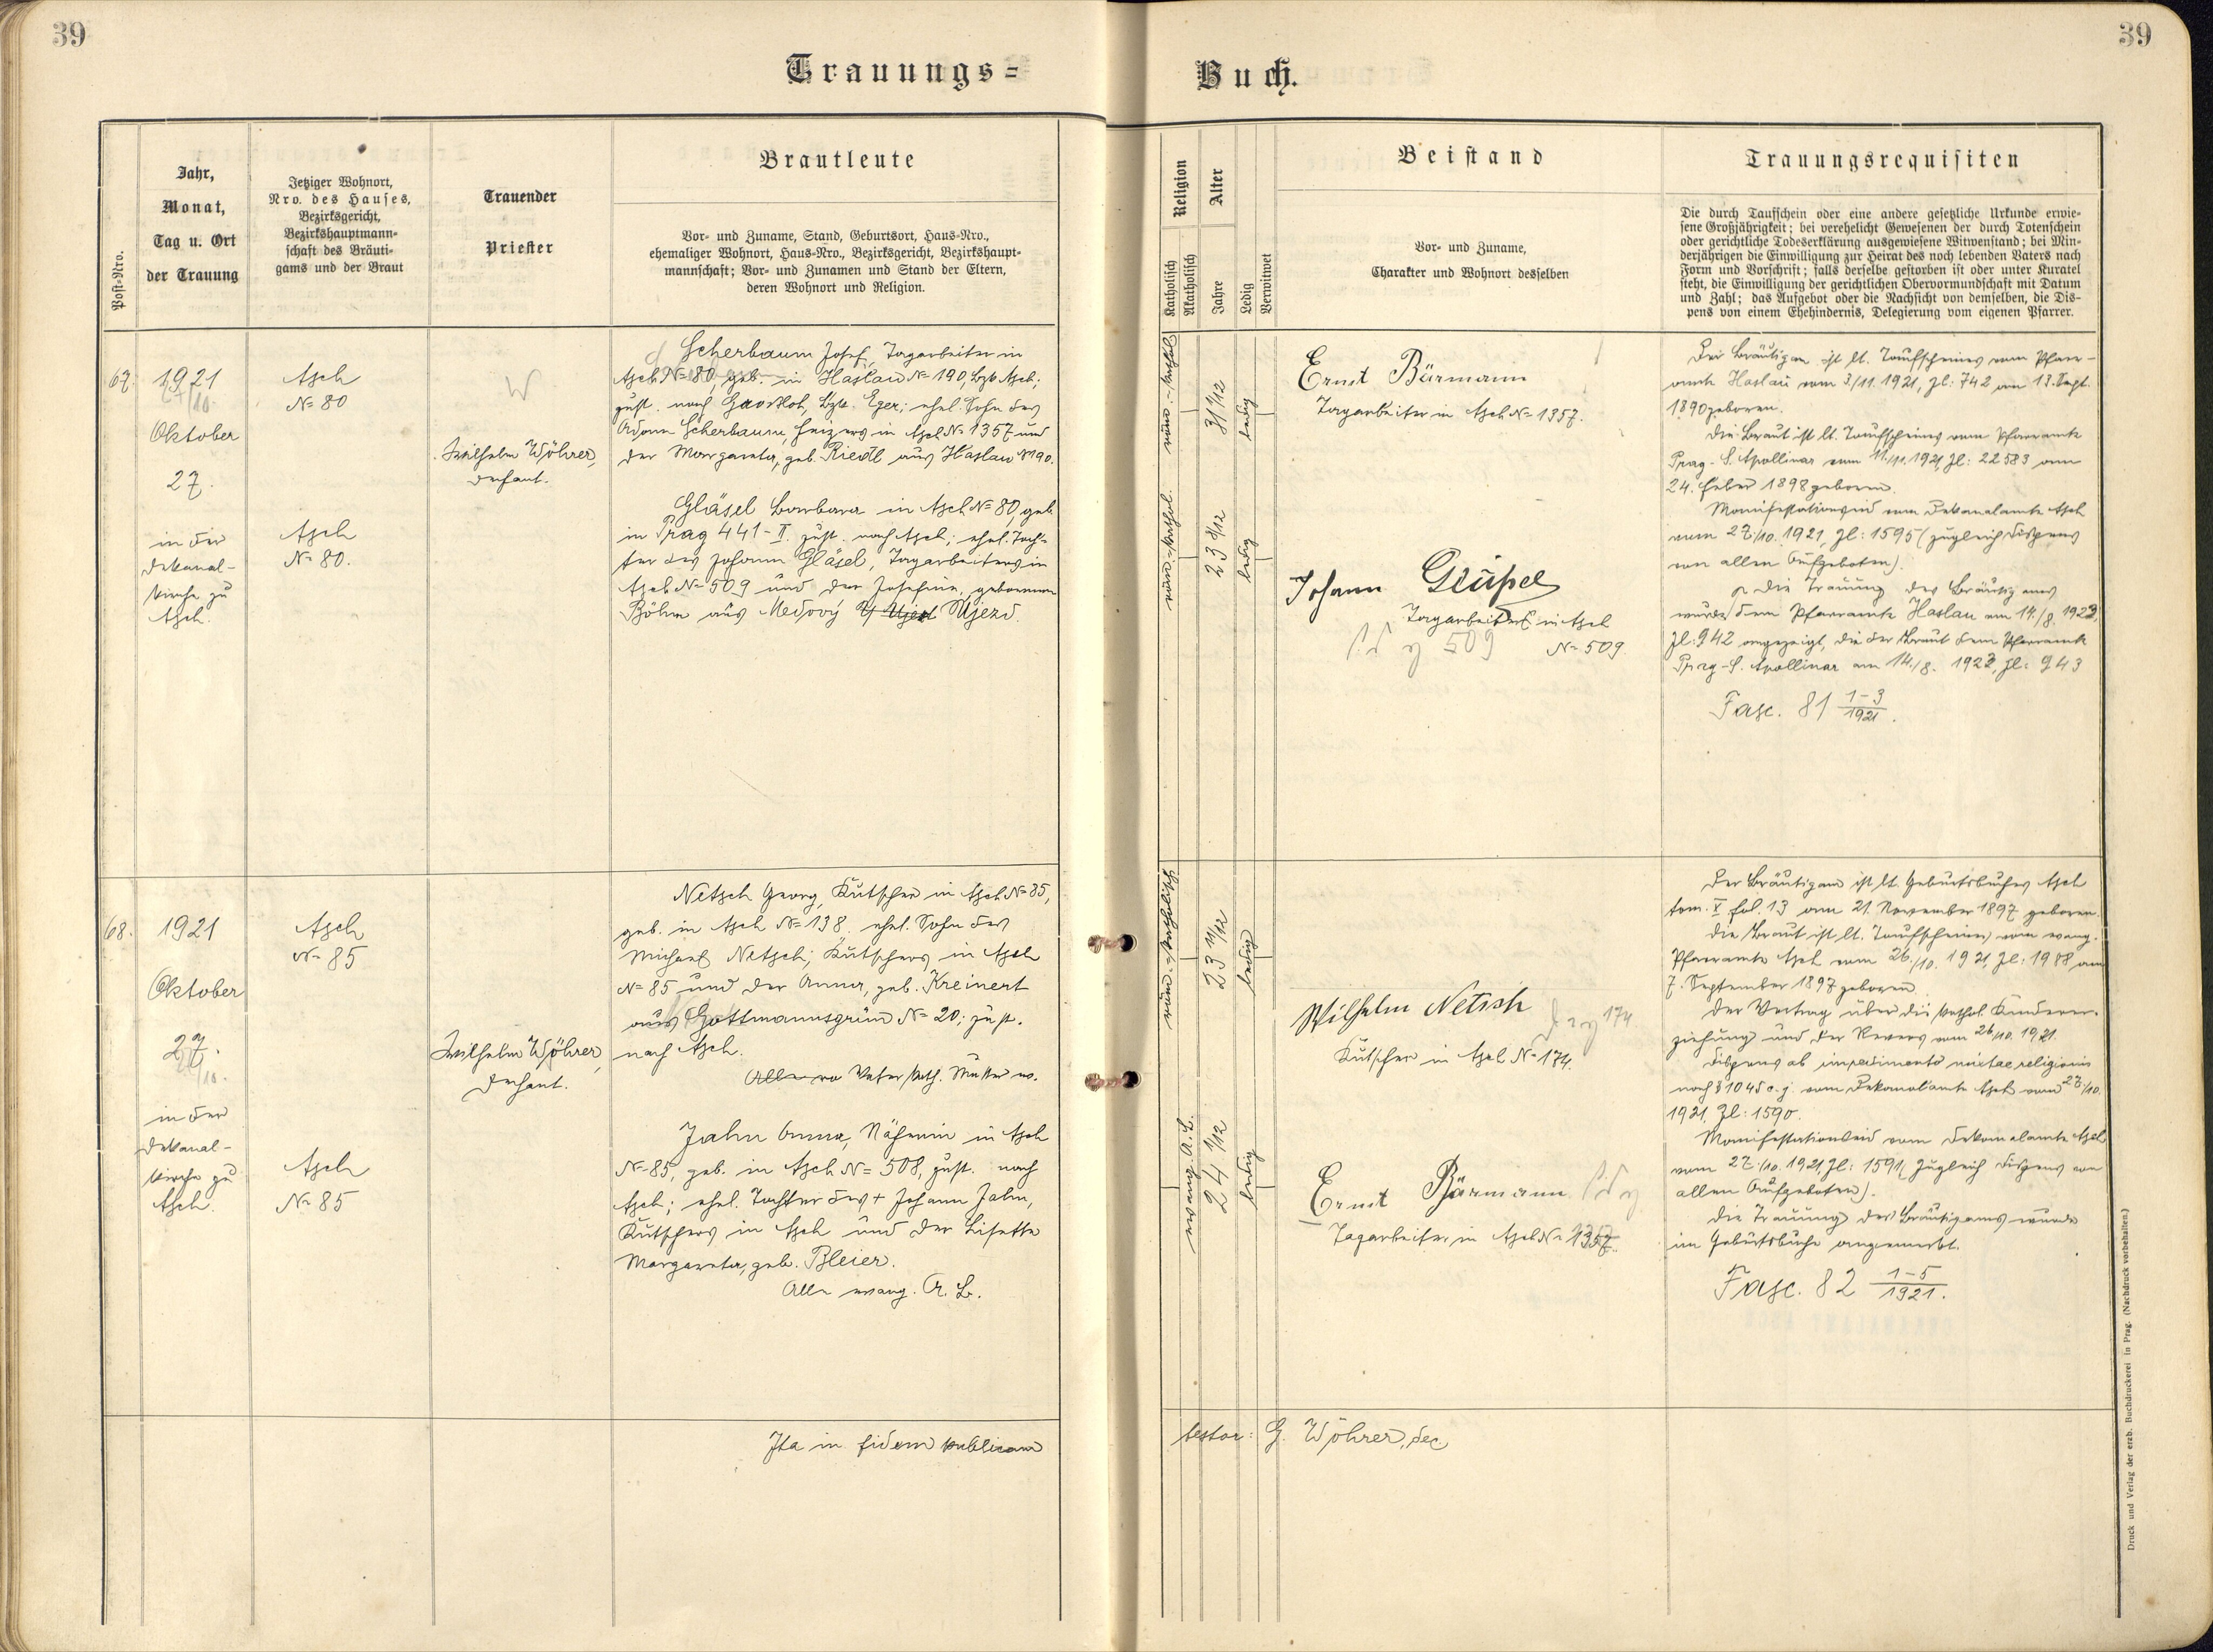 39
39
Trauungs=
Buch.
Post=Nro.
Jahr,
Monat,
Tag u. Ort
der Trauung
Jetziger Wohnort,
Nro. des Hauses,
Bezirksgericht,
Bezirkshauptmann=
schaft des Bräuti=
gams und der Braut
Trauender
Priester
Brautleute
Vor= und Zuname, Stand, Geburtsort, Haus=Nro.,
ehemaliger Wohnort, Haus=Nro., Bezirksgericht, Bezirkshaupt=
mannschaft; Vor= und Zunamen und Stand der Eltern,
deren Wohnort und Religion.
Religion
Katholisch
Akatholisch
Alter
Jahre
Ledig
Verwitwet
Beistand
Vor= und Zuname,
Charakter und Wohnort desselben
Trauungsrequisiten
Die durch Taufschein oder eine andere gesetzliche Urkunde erwie=
sene Großjährigkeit; bei verehelicht Gewesenen der durch Totenschein
oder gerichtliche Todeserklärung ausgewiesene Witwenstand; bei Min=
derjährigen die Einwilligung zur Heirat des noch lebenden Vaters nach
Form und Vorschrift; falls derselbe gestorben ist oder unter Kuratel
steht, die Einwilligung der gerichtlichen Obervormundschaft mit Datum
und Zahl; das Aufgebot oder die Nachsicht von demselben, die Dis=
pens von einem Ehehindernis, Delegierung vom eigenen Pfarrer.
67.
1921
27/10.
Oktober
27.
in der
Dekanal-
kirche zu
Asch.
Asch
N= 80
Asch
N= 80.
W
Wilhelm Wöhrer,
Dechant.
Scherbaum Josef, Tagarbeiter in
Asch N= 80, geb. in Haslau N= 190, Bzk. Asch;
zust. nach , Bzk. Eger; ehel. Sohn des
Adam Scherbaum, Heizers in Asch N= 1357 und
der Margareta, geb. Riedl aus Haslau N 190.
Gläsel Barbara in Asch N= 80, geb.
in Prag 441-II. zust. nach Asch; ehel. Toch-
ter des Johann Gläsel, Tagarbeiters in
Asch N= 509 und der Josefine, geborenen
Böhm aus Medový Ujezd.
röm.-kathol.
31 1/12
ledig
röm.-kathol.
23 8/12
ledig
Ernst Bärmann
Tagarbeiter in Asch N= 1357.
Johann
Tagarbeiter in Asch
509
N= 509.
Der Bräutigam ist lt. Taufscheines vom Pfarr-
amte Haslau vom 3/11. 1921, Zl: 742 am 18. Sept.
1890 geboren.
Die Braut ist lt. Taufscheines vom Pfarramte
Prag- S. Apollinar vom 11./11. 1921, Zl: 22583 am
24. Feber 1898 geboren.
Manifestationseid vom Dekanalamte Asch
vom 27./10. 1921, Zl: 1595 (zugleich Dispens
von allen Aufgeboten).
Die Trauung des Bräutigams
wurde dem Pfarramte Haslau am 14./8. 1922,
Zl: 942 angezeigt, die der Braut dem Pfarramte
Prag-S. Apollinar am 14./8. 1922, Zl: 943
Fasc. 81 1-3/1921.
68.
1921
Oktober
27.
27/10.
in der
Dekanal-
kirche zu
Asch.
Asch
N= 85
Asch
N= 85
Wilhelm Wöhrer,
Dechant.
Netsch Georg, Kutscher in Asch N= 85,
geb. in Asch N= 138. ehel. Sohn des
Michael Netsch; Kutschers in Asch
N= 85 und der Anna, geb. Kreinert
aus Gottmannsgrün N= 20; zust.
nach Asch.
Vater kath. Mutter ev.
Jahn Anna, Näherin in Asch
N= 85, geb. in Asch N= 508, zust. nach
Asch; ehel. Tochter des + Johann Jahn,
Kutschers in Asch und der Lisette
Margareta, geb. Bleier.
Alle evang. A. B.
röm.-katholisch
23 11/12
ledig
evang. A. B.
24 1/12
ledig
Wilhelm Netsch
174
Kutscher in Asch N= 174.
Ernst Bärmann
Tagarbeiter in Asch N= 1357.
Der Bräutigam ist lt. Geburtsbuches Asch
tom. X fol. 13 am 21. November 1897 geboren.
Die Braut ist lt. Taufscheines vom evang.
Pfarramte Asch vom 26./10. 1921, Zl: 1988 am
7. September 1897 geboren.
Der Vertrag über die kathol. Kinderer-
ziehung und der Revers vom 26/10. 1921.
Dispens ab impedimento mixtae religionis
nach § 1045 c. j. vom Dekanalamte Asch vom 27./10.
1921, Zl: 1590.
Manifestationseid vom Dekanalamte Asch
vom 27./10. 1921, Zl: 1591 (zugleich Dispens von
allen Aufgeboten).
Die Trauung des Bräutigams wurde
im Geburtsbuche angemerkt.
Fasc. 82 1-5/1921.
Ita in fidem publicam
testor: G. Wöhrer, dec
Druck und Verlag der erzb. Buchdruckerei in Prag. (Nachdruck vorbehalten.)